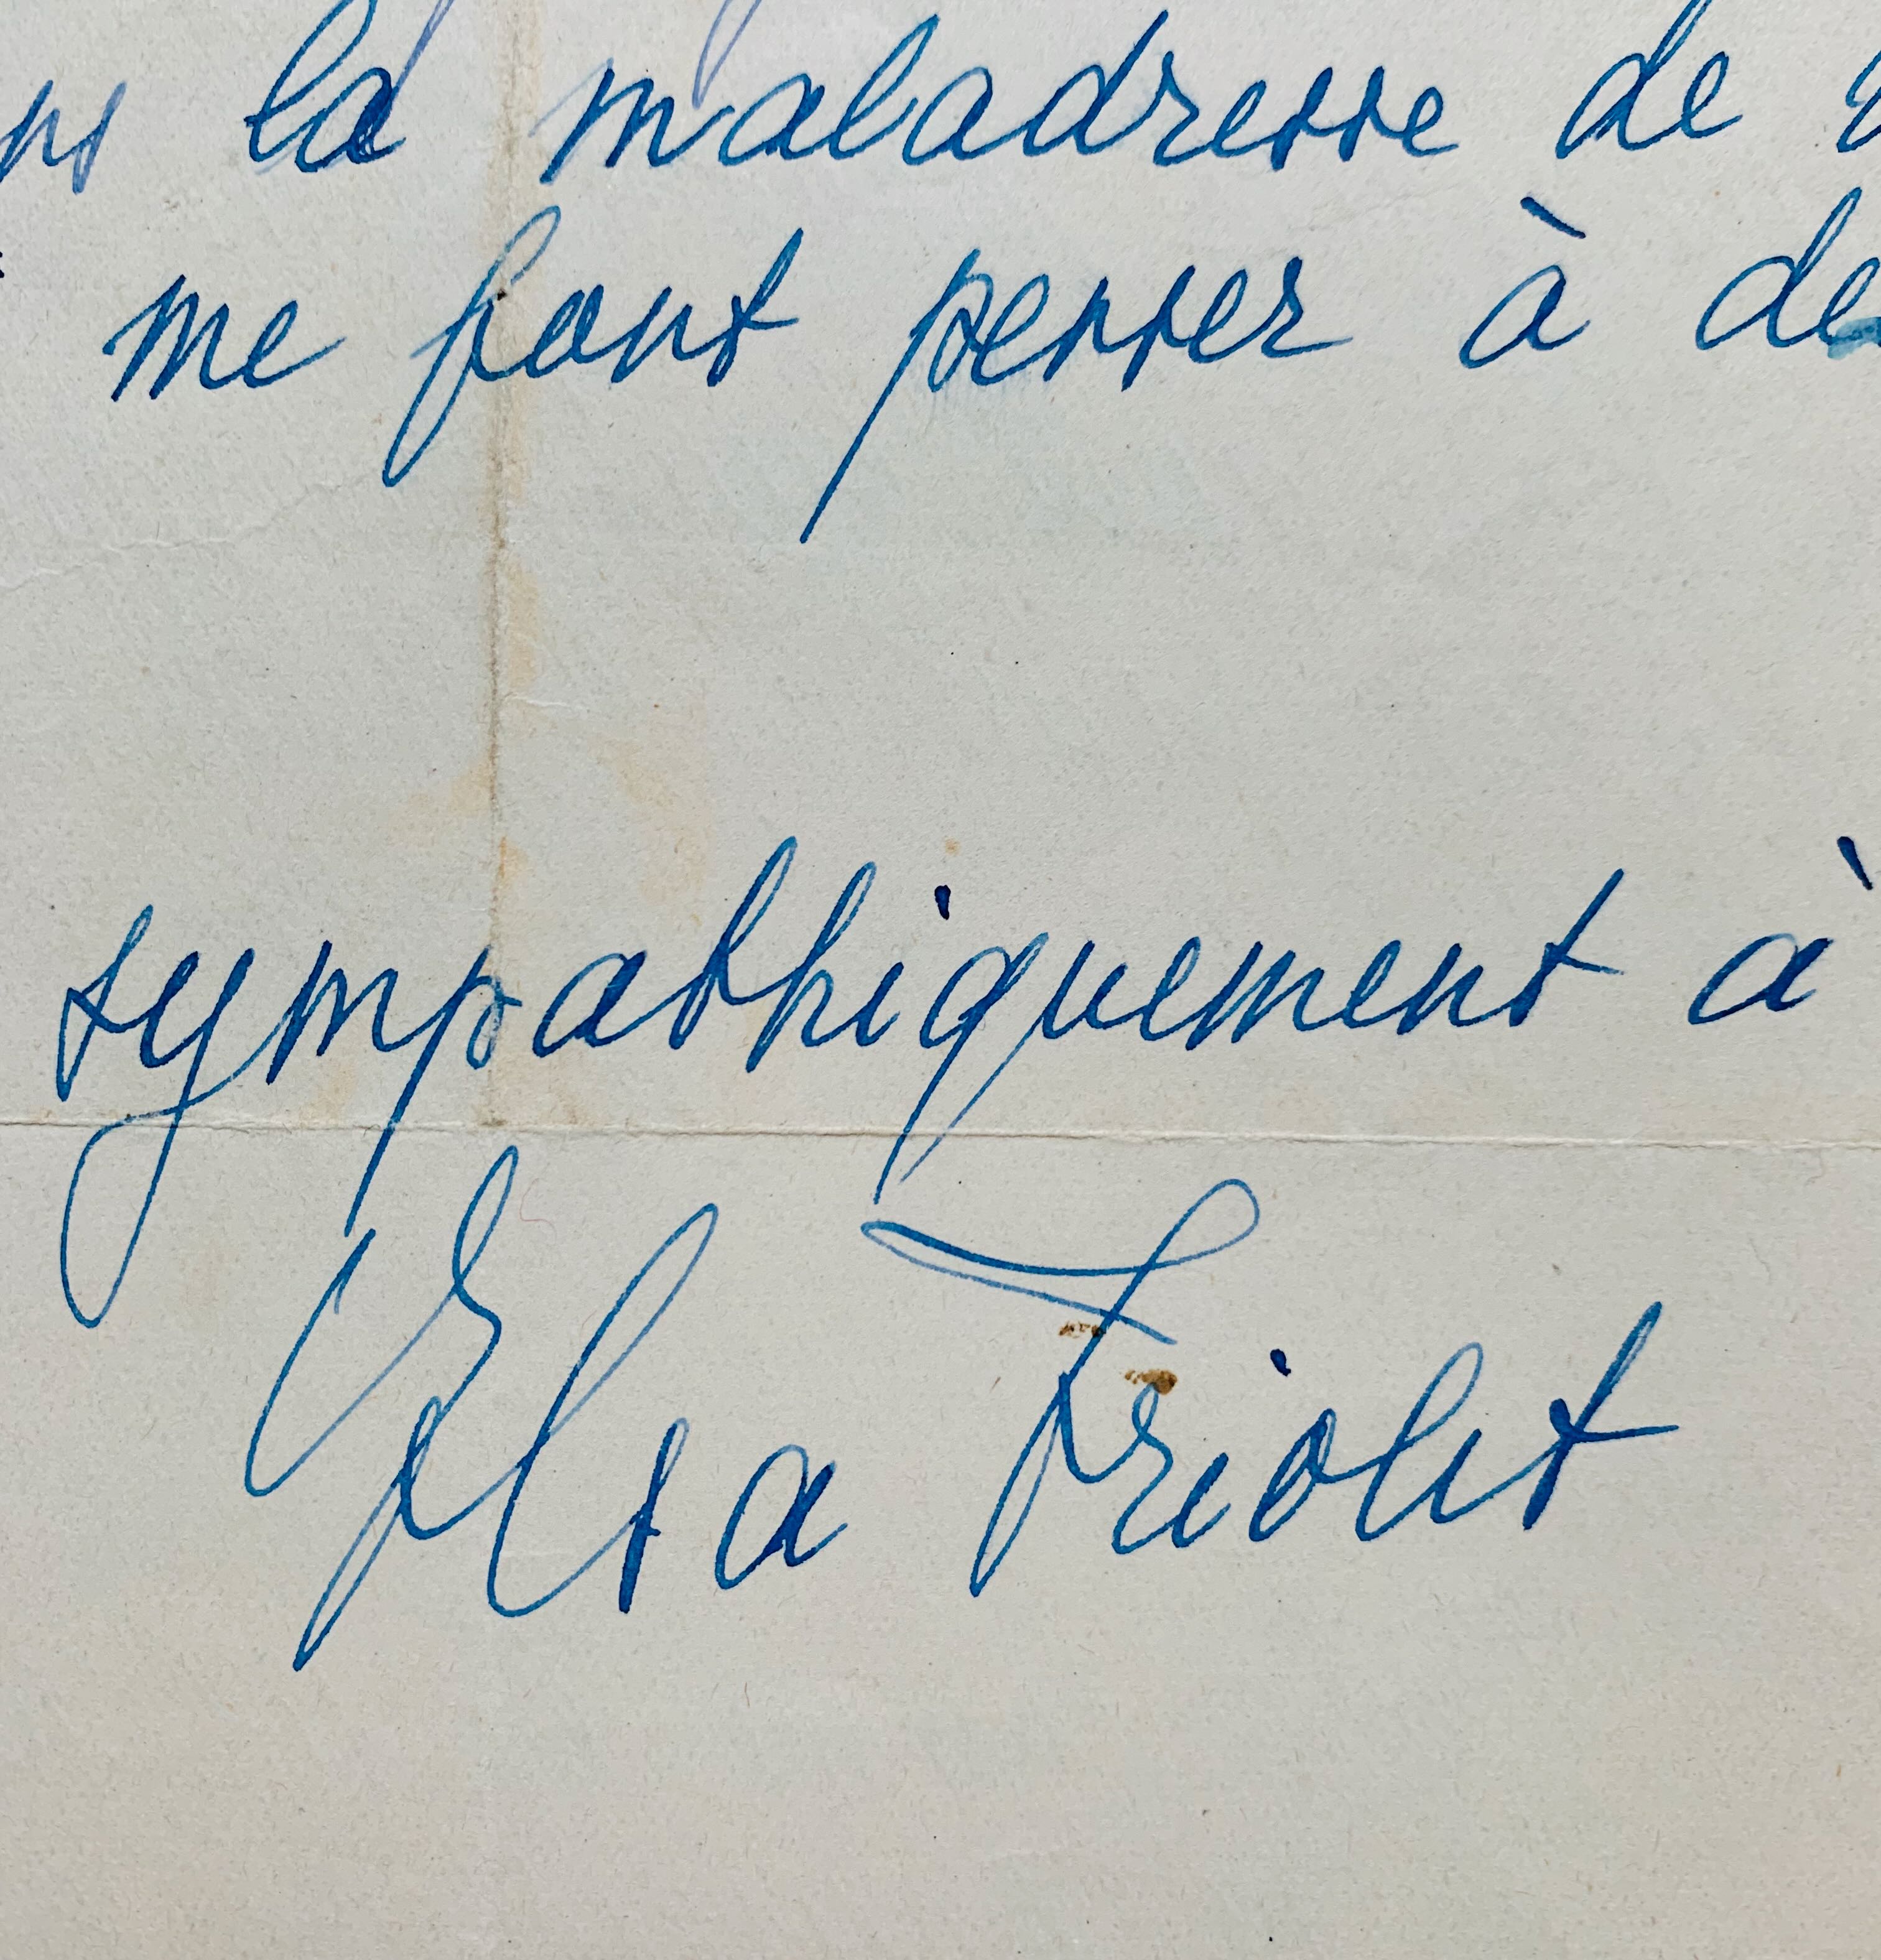 la maladresse de
me font penser à de
sympathiquement à
Elsa Triolet